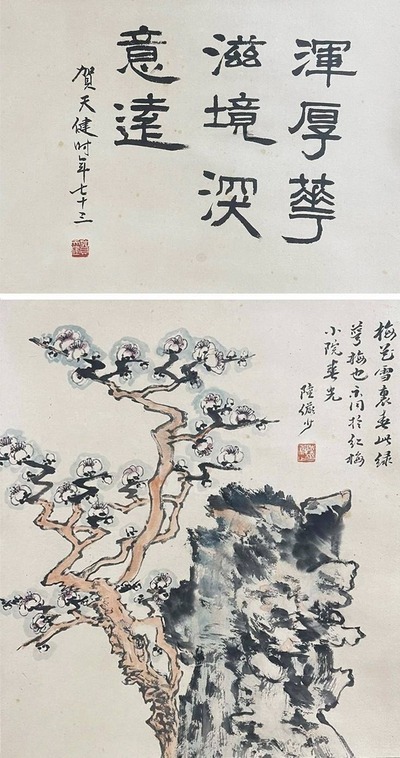 渾厚華
滋境深
意達
賀天健时年七十三
梅花雪裏春此緑
萼梅也不同於紅梅
小院春光
陸儼少